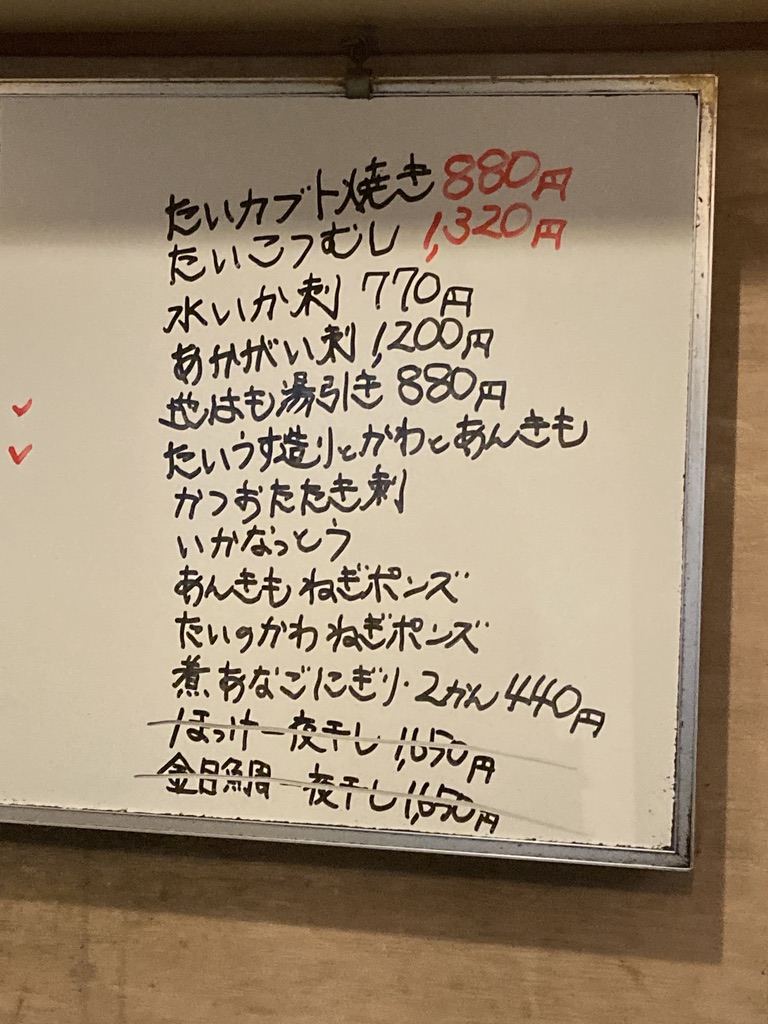 たいカブト焼き 880円
たいこつむし 1,320円
水いか刺 770円
あかがい刺 1,200円
地はも湯引き 880円
たいうす造りとかわとあんきも
かつおたたき刺
いかなっとう
あんきもねぎポンズ
たいのかわねぎポンズ
煮あなごにぎり・2かん 440円
ほっけ一夜干し 1,650円
金目鯛一夜干し 1,650円